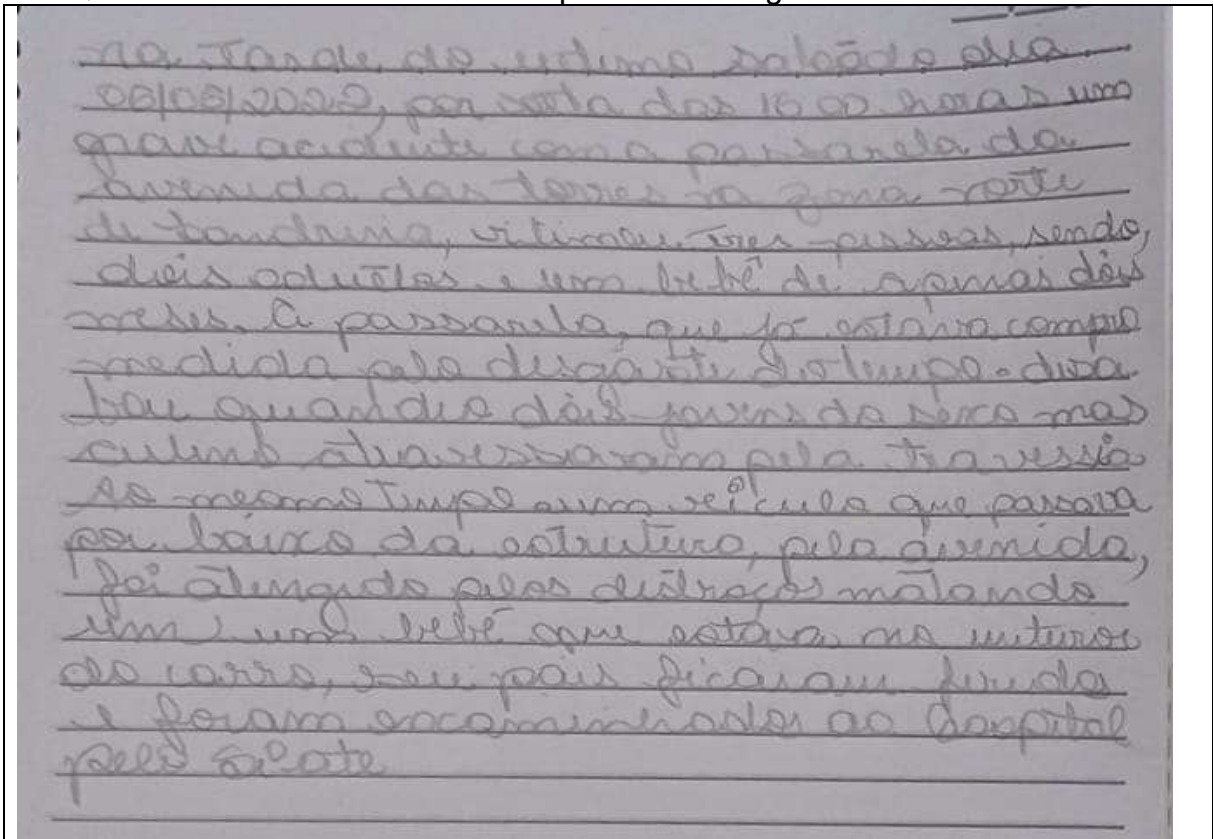 na Tarde do ultimo sabádo dia
06/06/2022, por volta das 16 00 horas um
grave acidente com a passarela da
avenida das torres na zona norte
de Londrina, vitimou tres pessoas, sendo,
dois adultos e um bebê de apenas dois
meses. A passarela, que já estava compro
medida pelo desgaste do tempo. desa
bou quando dois jovens do sexo mas
culino atravessaram pela travessia
ao mesmo Tempo um veículo que passava
por baixo da estrutura, pela avenida,
foi atingido pelos destroços matando
um bebê que estava no interior
do carro, seu pais ficaram ferido
e foram encaminhados ao hospital
pelo